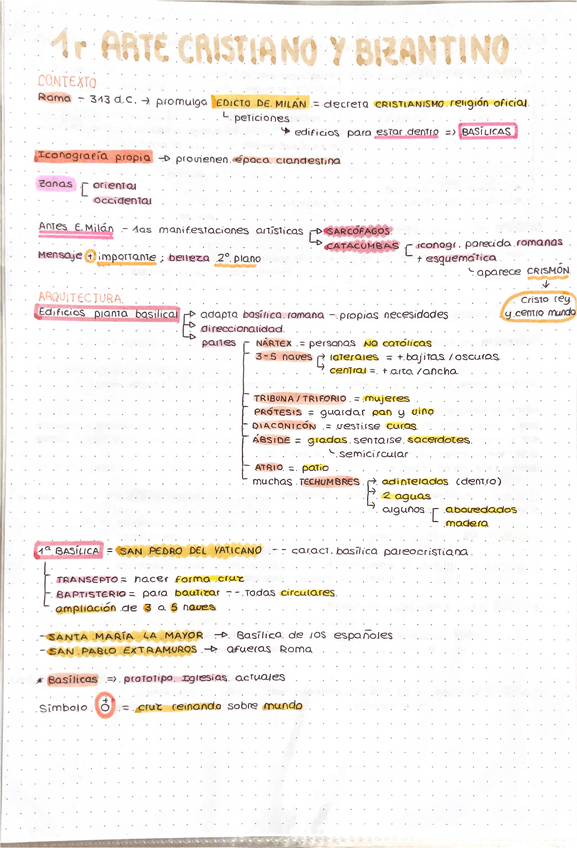 1r ARTE CRISTIANO Y BIZANTINO
CONTEXTO
Roma - 313 d.C. → promulga EDICTO DE MILÁN = decreta CRISTIANISMO religión oficial
peticiones
edificios para estar dentro => BASÍLICAS
Iconografía propia → provienen época clandestina
Zonas
oriental
occidental
Antes E.Milán - las manifestaciones artísticas
SARCÓFAGOS
CATACUMBAS
iconogr. parecida romanas
+ esquemática
aparece CRISMÓN
Cristo rey
y centro mundo
Mensaje + importante; belleza 2º plano
ARQUITECTURA
Edificios planta basilical
adapta basílica romana - propias necesidades
direccionalidad
partes
NÁRTEX = personas NO católicas
3-5 naves
laterales = + bajitas / oscuras
central = + alta / ancha
TRIBUNA / TRIFORIO = mujeres
PRÓTESIS = guardar pan y vino
DIACONICÓN = vestirse curas
ÁBSIDE = gradas sentarse sacerdotes
semicircular
ATRIO = patio
muchas TECHUMBRES
adintelados (dentro)
2 aguas
algunos
abovedados
madera
1ª BASÍLICA = SAN PEDRO DEL VATICANO -- caract. basílica paleocristiana
TRANSEPTO = hacer forma cruz
BAPTISTERIO = para bautizar -- todas circulares
ampliación de 3 a 5 naves
- SANTA MARÍA LA MAYOR → Basílica de los españoles
- SAN PABLO EXTRAMUROS → afueras Roma
* Basílicas => prototipo Iglesias actuales
Símbolo = cruz reinando sobre mundo